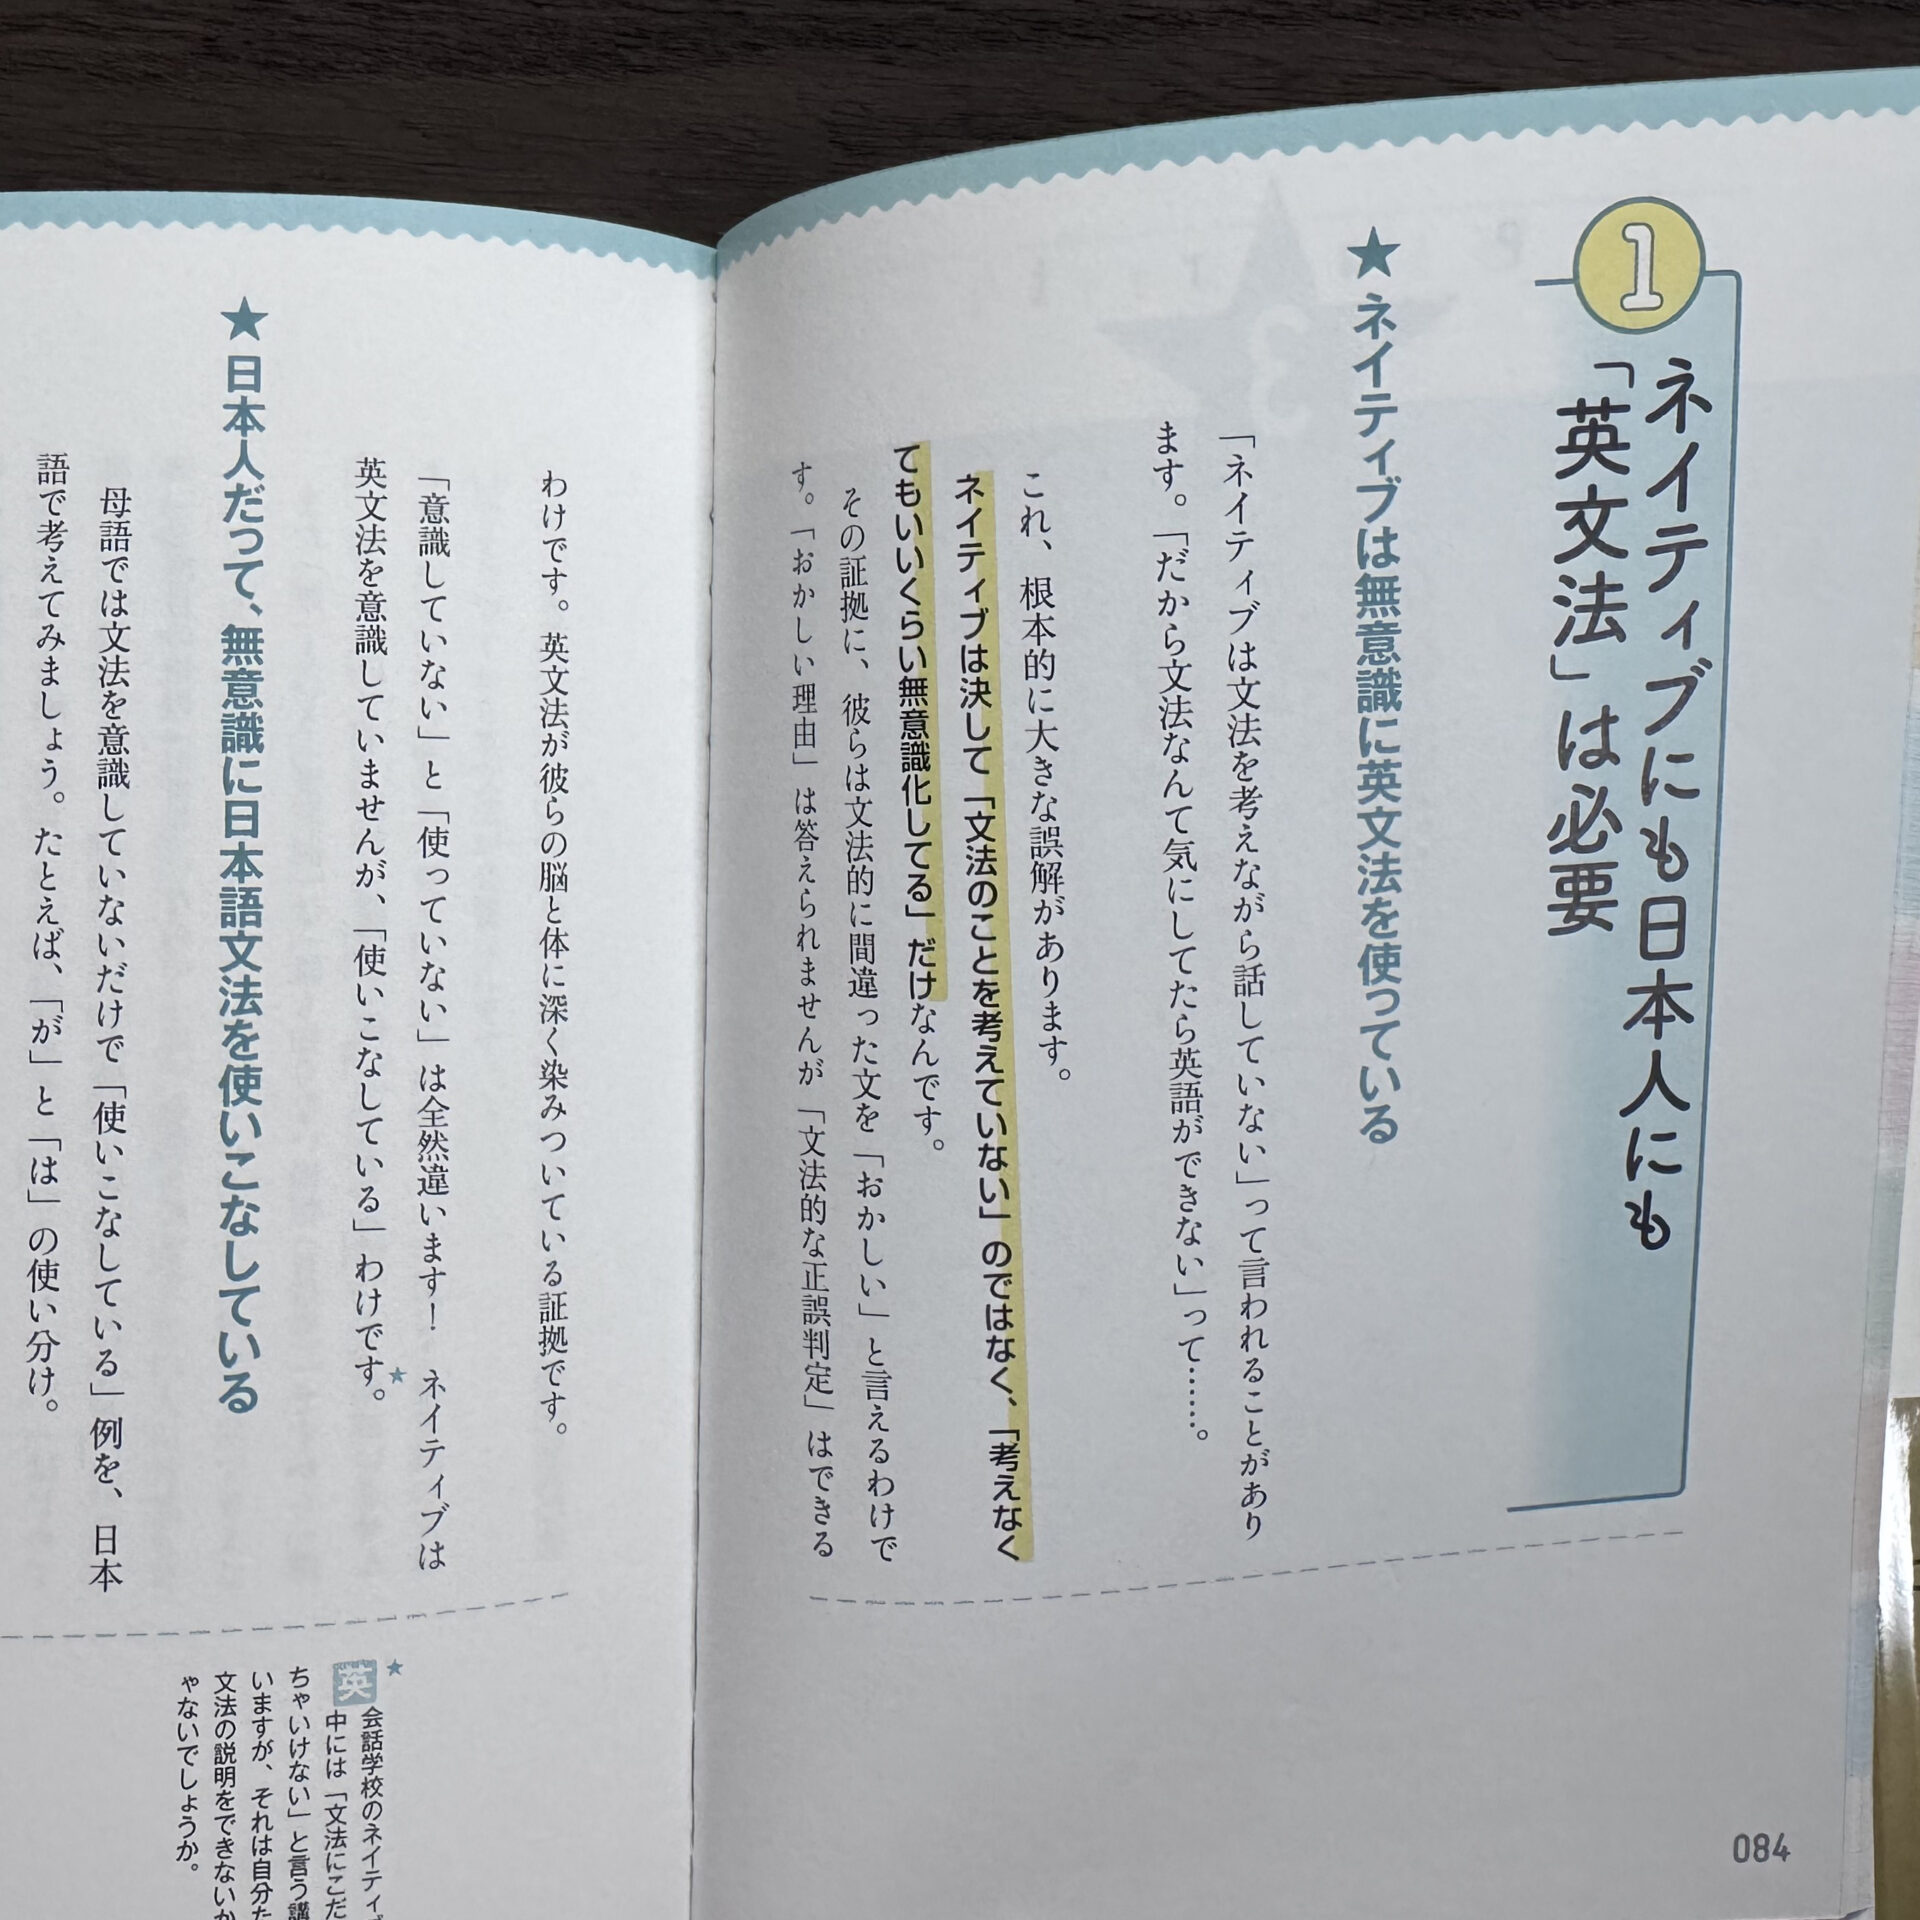 1
ネイティブにも日本人にも
「英文法」は必要
★ネイティブは無意識に英文法を使っている
「ネイティブは文法を考えながら話していない」って言われることがあり
ます。「だから文法なんて気にしてたら英語ができない」って……。
これ、根本的に大きな誤解があります。
ネイティブは決して「文法のことを考えていない」のではなく、「考えなく
てもいいくらい無意識化してる」だけなんです。
その証拠に、彼らは文法的に間違った文を「おかしい」と言えるわけで
す。「おかしい理由」は答えられませんが「文法的な正誤判定」はできる
084
わけです。英文法が彼らの脳と体に深く染みついている証拠です。
「意識していない」と「使っていない」は全然違います！ ネイティブは
英文法を意識していませんが、「使いこなしている」わけです。★
★日本人だって、無意識に日本語文法を使いこなしている
母語では文法を意識していないだけで「使いこなしている」例を、日本
語で考えてみましょう。たとえば、「が」と「は」の使い分け。
★
英会話学校のネイティ
中には「文法にこだ
ちゃいけない」と言う講
いますが、それは自分た
文法の説明をできないか
ゃないでしょうか。